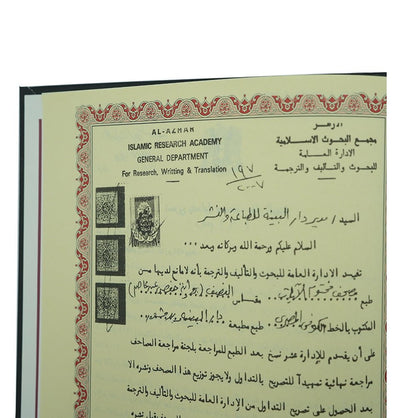 AL-AZHAR
ISLAMIC RESEARCH ACADEMY
GENERAL DEPARTMENT
For Research, Writting & Translation
الازهر
مجمع البحوث الاسلامية
الادارة العامة
للبحوث والتأليف والترجمة
١٩٧
السيد / مدير دار البينة للطباعة والنشر
السلام عليكم ورحمة الله وبركاته وبعد ...
تفيد الادارة العامة للبحوث والتأليف والترجمة بأنه لامانع لديها من
طبع مصحف مقاس
المكتوب بالخط الكوفى المصرى طبع مطبعة
على أن يقدم للإدارة عشر نسخ بعد الطبع للمراجعة بلجنة مراجعة المصاحف
مراجعة نهائية تمهيدآ للتصريح بالتداول ولا يجوز توزيع هذا المصحف ونشره الا
بعد الحصول على تصريح بالتداول من الادارة العامة للبحوث والتأليف والترجمة